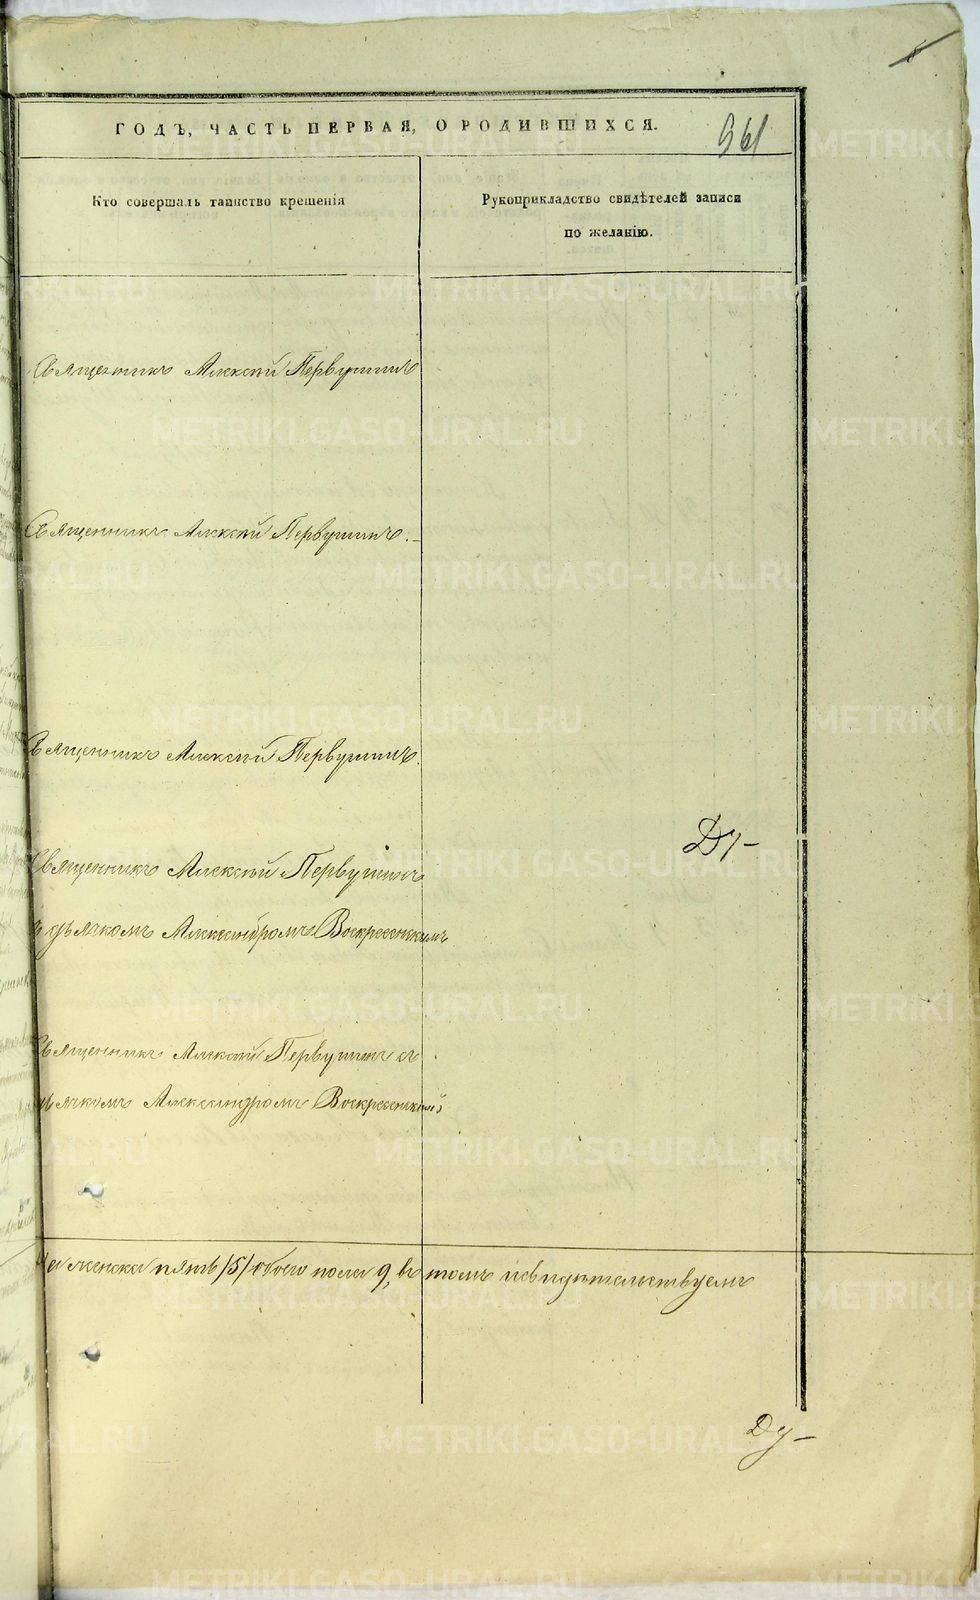 ГОДЪ, ЧАСТЬ ПЕРВАЯ, О РОДИВШИХСЯ.
961
Кто совершалъ таинство крещенія
Рукоприкладство свидѣтелей записи
по желанію.
Священникъ Алексѣй Первушинъ
Священникъ Алексѣй Первушинъ.
Священникъ Алексѣй Первушинъ.
Священникъ Алексѣй Первушинъ
съ дьячкомъ Александромъ Воскресенскимъ
Священникъ Алексѣй Первушинъ съ
дьячкомъ Александромъ Воскресенскимъ
женска пять /5/ обоего пола 9, въ томъ и свидѣтельствуемъ
Ду-
Ду-
METRIKI.GASO-URAL.RU